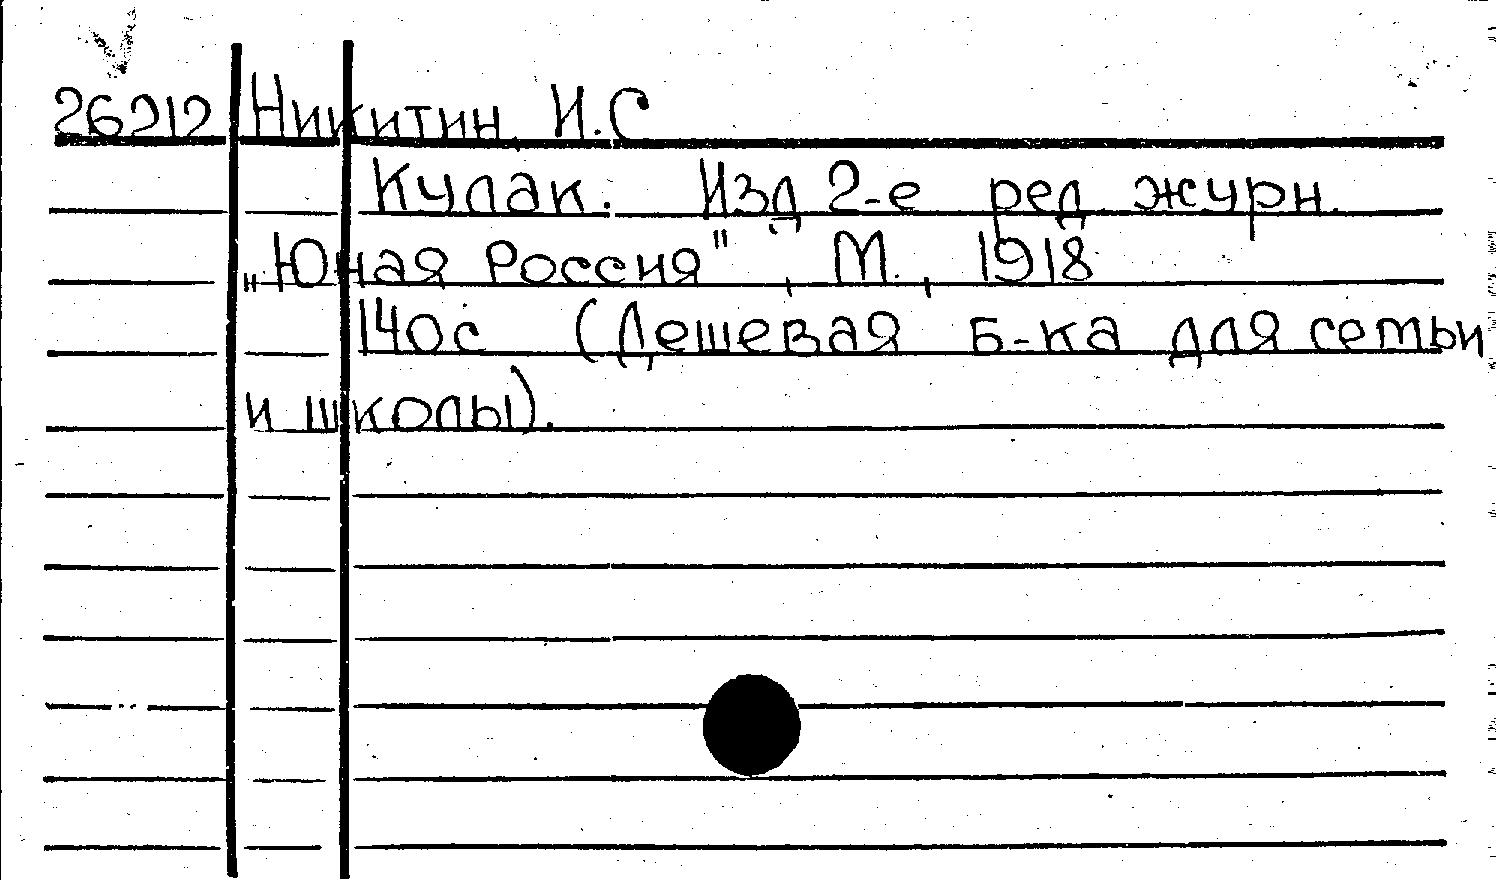 26212 Никитин И.С
Кулак. Изд 2-е ред. журн.
„Юная Россия", М., 1918
140с (Дешевая Б-ка для семьи
и школы).